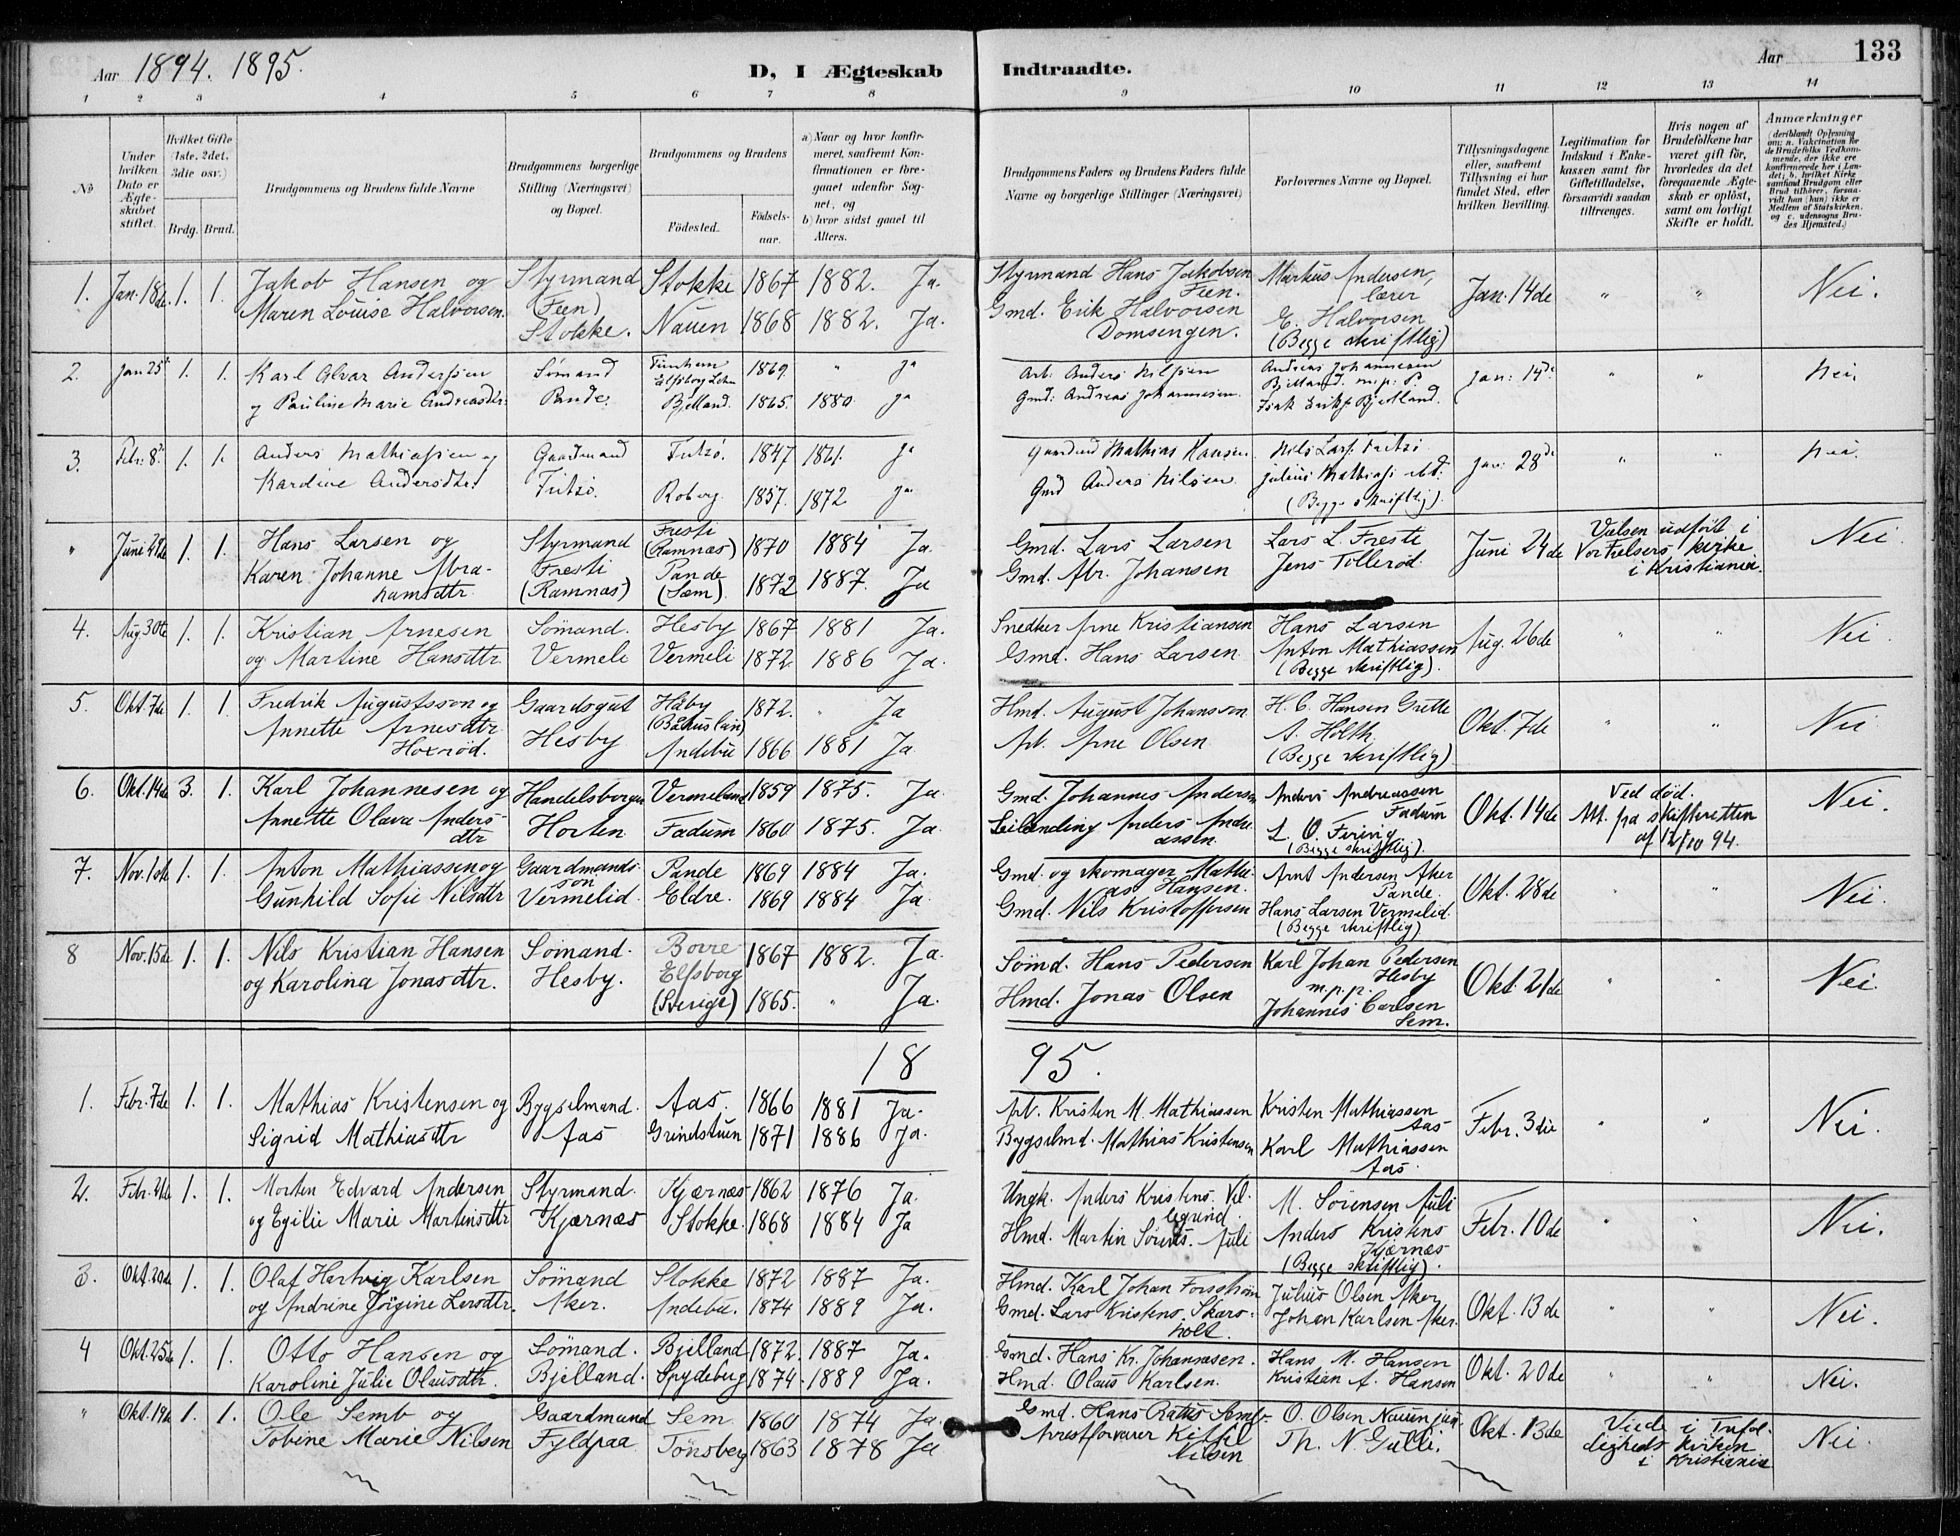 Aar 1894. 1895.
D, I Ægteskab Indtraadte.
Aar 133
1 2 3 4 5 6 7 8 9 10 11 12 13 14
No
Under hvilken Dato er Ægteskabet stiftet.
Hvilket Gifte (1ste, 2det, 3die osv.)
Brdg. Brud.
Brudgommens og Brudens fulde Navne
Brudgommens borgerlige Stilling (Næringsvei) og Bopæl.
Brudgommens og Brudens
Fødested. Fødsels-aar.
a) Naar og hvor konfirmeret, saafremt Konfirmationen er foregaaet udenfor Sognet, og
b) hvor sidst gaaet til Alters.
Brudgommens Faders og Brudens Faders fulde Navne og borgerlige Stillinger (Næringsvei)
Forlovernes Navne og Bopæl.
Tillysningsdagene eller, saafremt Tillysning ei har fundet Sted, efter hvilken Bevilling.
Legitimation for Indskud i Enkekassen samt for Giftetilladelse, forsaavidt saadan tiltrænges.
Hvis nogen af Brudefolkene har været gift før, hvorledes da det foregaaende Ægteskab er opløst, samt om lovligt Skifte er holdt.
Anmærkninger
1. Jan. 18de 1. 1. Jakob Hansen og Styrmand Stokke 1867 1882. Ja. Styrmand Hans Jakobsen Feen. Markus Andersen, lærer Jan. 14de " " Nei.
Maren Louise Halvorsen. Feen) Stokke. Nauen 1868 1882. Ja. Gmd. Erik Halvorsen Domsengen. E. Halvorsen (Begge skriftlig)
2. Jan 25 1. 1. Karl Alvar Andersen Sømand 1869. " ja Arb. Anders Nilsen Andreas Johannesen Bjelland m.p. P. jan: 14de " " Nei.
og Pauline Marie Andreasdtr. Pande. Bjelland. 1865. 1880. ja Gmd: Andreas Johannesen. Bjelland.
3. Febr: 8de 1. 1. Anders Mathiassen og Gaardmand Fritsø. 1847 1861. ja Gaardmd Mathias Hansen. Nils Lars. Fritsø jan: 28de " " Nei.
Kardine Andersdtr. Fritsø. Roberg. 1857. 1872 ja Gmd Anders Nilsen. Julius Mathias. (Begge skriftlig).
" Juni 1. 1. Hans Larsen og Styrmand Fresti (Ramnæs) 1870 1884 Ja. Gmd. Lars Larsen Lars L. Freste Juni 24de Vielsen udført i Vor Frelsers kirke i Kristiania. Nei.
Karen Johanne Abrahamsdtr. Fresti (Ramnæs) Pande (Sem). 1872 1887. Ja Gmd. Abr. Johansen Jens Tollerød.
4. Aug 30te 1. 1. Kristian Arnesen Sømand. Hesby 1867 1881 Ja. Snedker Arne Kristiansen Hans Larsen Aug. 26de " " Nei.
og Martine Hansdtr. Vermeli Vermeli 1872. 1886 Ja. Gmd. Hans Larsen. Anton Mathiassen (Begge skriftlig).
5. Okt. 7de 1. 1. Fredrik Augustsson og Gaardsgut Håby (Båhuslän) 1872. " Ja Hmd. August Johansson. H. C. Hansen Grette Okt. 7de " " Nei
Annette Arnesdtr. Hoxrød. Hesby Andebu 1866 1881 Ja. Arb. Arne Olsen. A. Holth. (Begge skriftlig)
6. Okt. 14de 3. 1. Karl Johannesen og Handelsborger Vermeland 1859 1875. Ja. Gmd. Johannes Andersen Anders Andreassen Fadum Okt. 14de Ved død. Att. fra skifteretten af 12/10 94. Nei.
Annette Olava Andersdtr Horten Fadum 1860 1875. Ja. Leilending Anders Andreassen. L. O. Firing (Begge skriftlig).
7. Nov. 1ste 1. 1. Anton Mathiassen og Gaardmandsson Pande 1869 1884 Ja. Gmd. og skomager Mathias Hansen. Arnt Andersen Aker Pande. Okt. 28de " " Nei.
Gunhild Sofie Nilsdtr Vermelid. Eldre. 1869 1884 Ja. Gmd. Nils Kristoffersen Hans Larsen Vermelid. (Begge skriftlig)
8 Nov. 15de 1. 1. Nils Kristian Hansen Sømand. Borre 1867 1882. Ja. Sømd. Hans Pedersen Karl Johan Pedersen Hesby m.p.p. Okt. 21de " " Nei.
og Karolina Jonasdtr. Hesby. Elfsborg (Sverige) 1865. " Ja. Hmd. Jonas Olsen Johannes Carlsen Sem.
18 95.
1. Febr. 7de 1. 1. Mathias Kristensen og Bygselmand. Aas. 1866 1881 Ja. Arb. Kristen M. Mathiassen Kristen Mathiassen Aas Febr. 3die " " Nei.
Sigrid Mathiasdtr Aas Grindstuen 1871 1886 Ja. Bygselmd. Mathias Kristensen Karl Mathiassen Aas.
2. Febr. 21de 1. 1. Morten Edvard Andersen Styrmand. Kjærnæs 1862 1876 Ja. Ungk. Anders Kristens. M. Sørensen Auli Febr. 10de " " Nei.
og Egilie Marie Martinsdtr Kjærnæs Stokke. 1868 1884 Ja Hmd. Martin Sørens. Auli Anders Kristens Kjærnæs (Begge skriftlig).
3. Okt. 20de 1. 1. Olaf Hartvig Karlsen Sømand Stokke 1872 1887 Ja. Hmd. Karl Johan Forsstrøm Julius Olsen Aker Okt. 13de " " Nei.
og Andrine Jørgine Larsdtr. Aker. Andebu. 1874 1889 Ja. Gmd. Lars Kristens. Skarsholt. Johan Karlsen Aker.
4 Okt. 25de 1. 1. Otto Hansen og Sømand. Bjelland 1872. 1887 Ja. Gmd. Hans Kr. Johannesen. Hans M. Hansen Okt. 20de " Nei.
Karoline Julie Olausdtr. Bjelland. Spydeberg 1874. 1889 Ja. Hmd. Olaus Karlsen. Kristian A. Hansen
" Okt. 19de 1. 1. Ole Semb og Gaardmand Sem. 1860 1874 Ja. Gmd. Hans Semb. O. Olsen Nauen jun. Okt. 13de Viede i Trefoldigheds kirken i Kristiania Nei.
Tobine Marie Nilsen Fyldpaa Tønsberg 1863 1878 Ja Arrestforvarer Kittil Nilsen Th. N. Gulli.